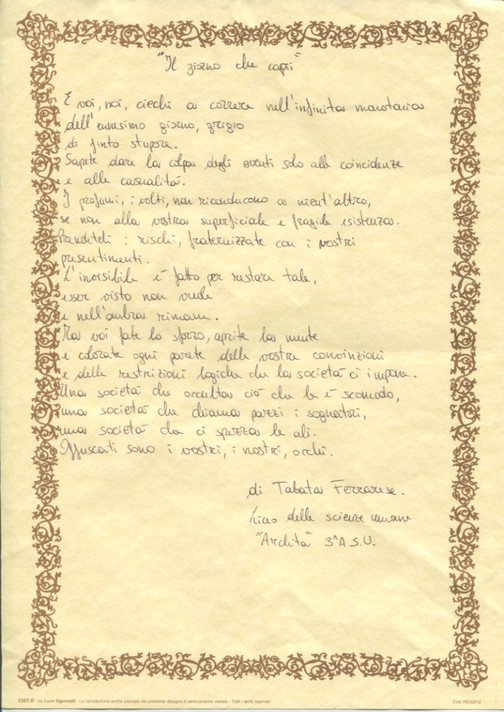 "Il giorno che capii"
E voi, noi, ciechi a correre nell'infinita monotonia
dell'ennesimo giorno, grigio
di finto stupore.
Sapete dare la colpa degli eventi solo alle coincidenze
e alle casualità.
I profumi, i volti, non riconducono a nient'altro,
se non alla vostra superficiale e fragile esistenza.
Prendeteli i rischi, fraternizzate con i vostri
presentimenti.
L'invisibile è fatto per restare tale,
esser visto non vuole
e nell'ombra rimane.
Ma voi fate lo sforzo, aprite la mente
e colorate ogni parete delle vostre convinzioni
e delle restrizioni logiche che la società ci impone.
Una società che occulta ciò che le è scomodo,
una società che chiama pazzi i sognatori,
una società che ci spezza le ali.
Offuscati sono i vostri, i nostri, occhi.
di Tabata Ferrarese.
Liceo delle scienze umane
"Archita" 3^A S.U.
Luca Signorelli - La riproduzione anche parziale del presente disegno è severamente vietata - Tutti i diritti riservati